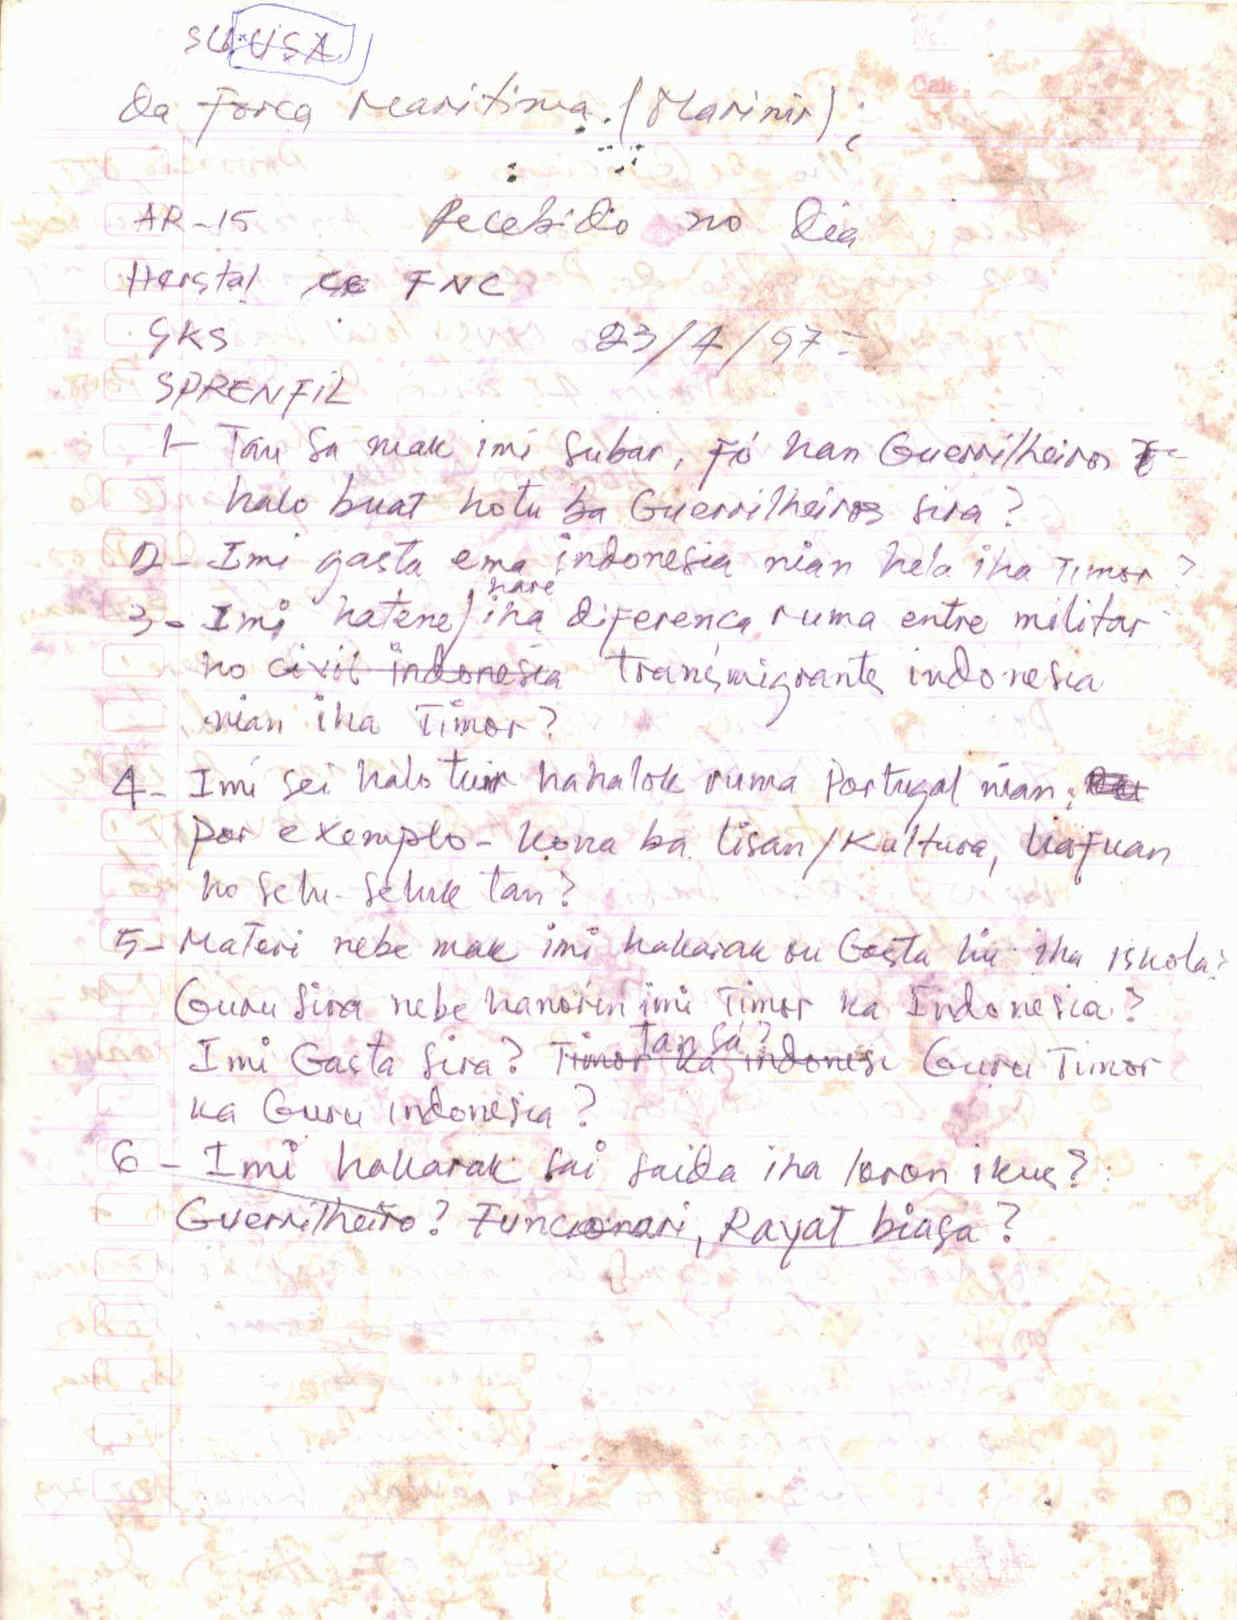 SU.USA
da Forca Maritima. (Marinir);
AR-15 Recebido no dia
Herstal FNC
SKS 23/4/97=
SPRENFIL
1- Tan sa mak imi subar, fó han Guerrilheiros
halo buat hotu ba Guerrilheiros sira?
2- Imi gasta ema indonesia nian hela iha Timor?
3- Imi hatene/hare iha diferenca ruma entre militar
ho civil indonesia transmigrante indonesia
nian iha Timor?
4- Imi sei halo tuir hahalok ruma Portugal nian,
por exemplo - kona ba lisan/kultura, liafuan
ho selu-seluk tan?
5- Materi nebe mak imi hakarak ou Gosta liu iha iskola?
Guru sira nebe hanorin imi Timor ka Indonesia?
Imi Gasta sira? Tan sá? Timor ka indonesi Guru Timor
ka Guru indonesia?
6- Imi hakarak sai saida iha loron ikus?
Guerrilheiro? Funcionari, Rayat biasa?